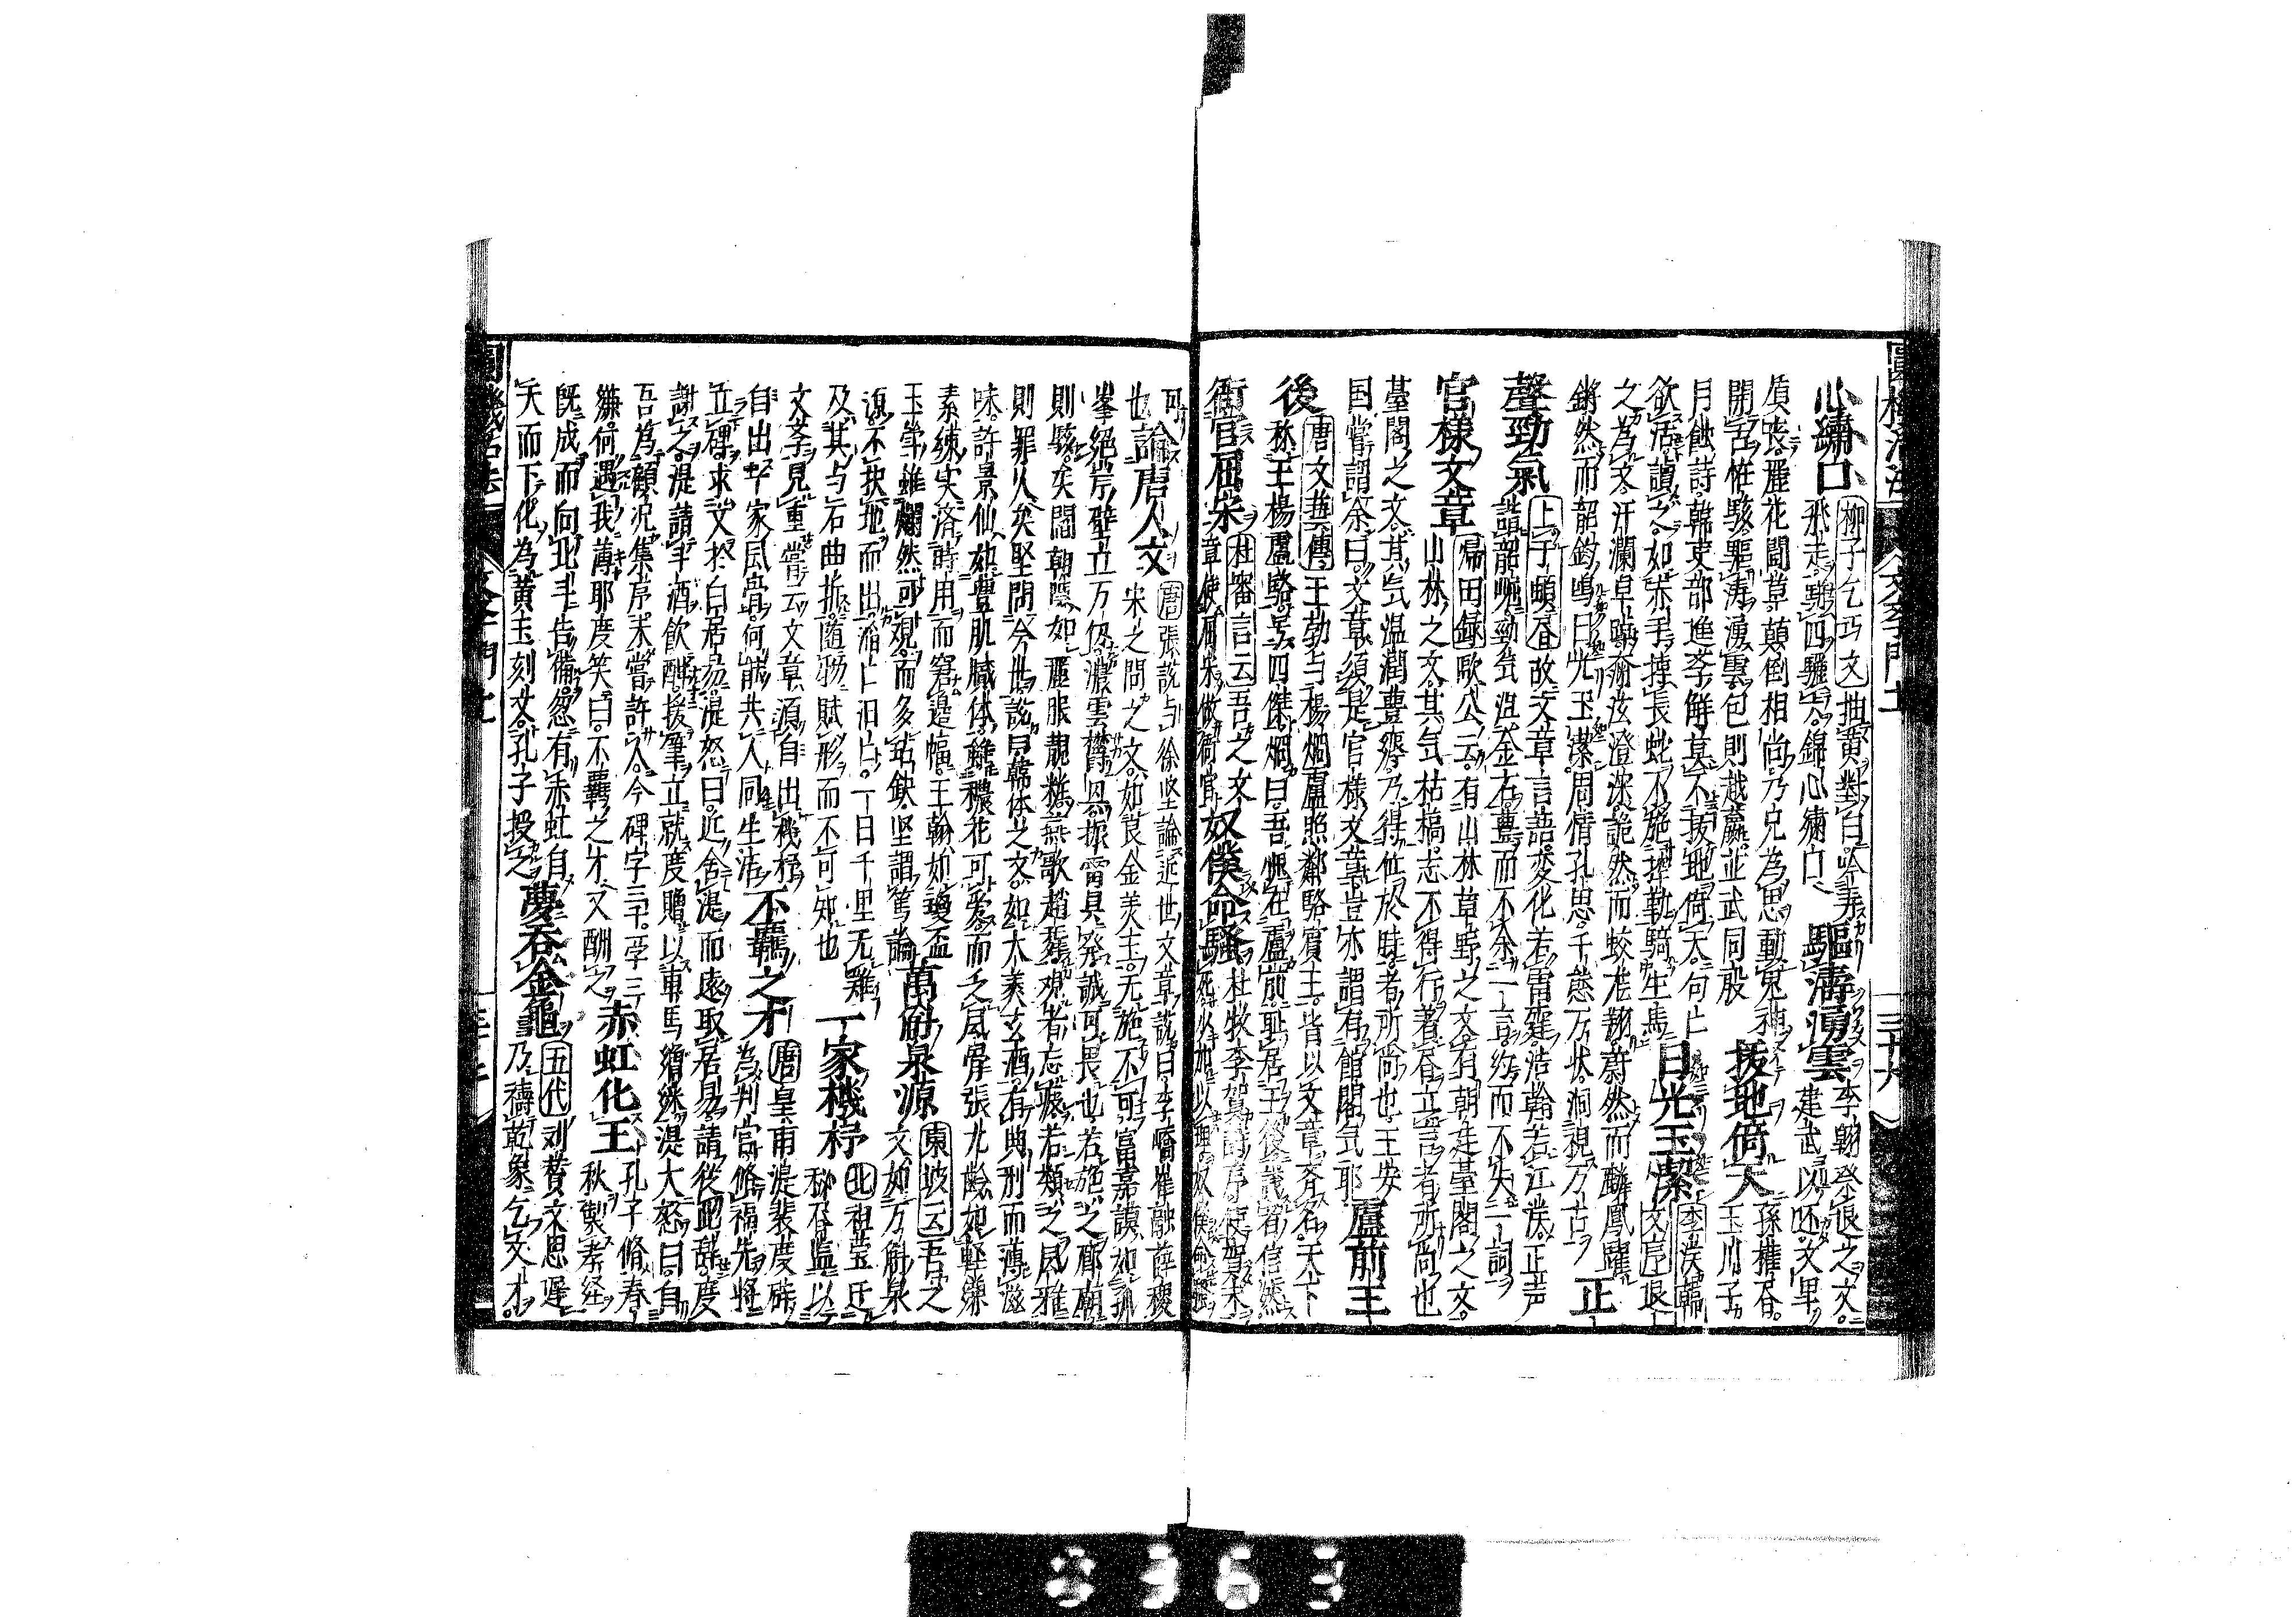 心繡口 柳子乞巧文 抽黃對白哈哢
飛走駢四驪六錦心繡口 驅濤湧雲 李翱祭退之文
建武以還文卑
質喪麗花鬪草顛倒相尚乃兄為思動鬼神
開合恠駭驅濤湧雲包則越嬴並武同殷 拔地倚天 孫樵呑
玉川子
月蝕詩韓吏部進李解莫不拔地倚天句
欲活讀之如赤手捕長蛇不施控勒騎生馬 日光玉潔 李漢韓
文序退
之為文汗瀾卓踔奫泫澄深詭然而蛟龍翔蔚然而麟鳳躍
鏘然而韶鈞鳴日光玉潔周情孔思千態万状洞視万古 正
聲勁氣 上于頔書 故文章言語変化若雷霆浩瀚若江漢正声
諧韶頀勁氣沮金石豊而不余一言約而不失一詞
官樣文章 帰田録 欧公云有山林草野之文有朝廷臺閣之文
山林之文其気枯槁志不得行著書立言者所尚也
臺閣之文其気温潤豊縟乃得位於時者所尚也王安
国嘗謂余曰文章須是官様文章豈亦謂有館閣気耶 盧前王
後 唐文藝傳 王勃与楊烱盧照鄰駱賓王皆以文章斉名天下
称王楊盧駱号四傑烱曰吾愧在盧前耻居王後議者信然
衙官屈宋 杜審言云 吾之文
章使屈宋做衙官 奴僕命騷 杜牧李賀詩序使賀未
死少加以理奴僕命騷
可
也 論唐人文 唐 張説与徐堅論近世文章説曰李嶠崔融薛稷
宋之問之文如良金美玉无施不可富嘉謨如孤
峯絶岸壁立万仭濃雲欝興振雷具発誠可畏也若施之廊廟
則駭矣閻朝隠如麗服靚粧燕歌趙舞観者忘疲若類之風雅
則罪人矣堅問今世説曰韓休之文如大羹玄酒有典刑而薄滋
味許景先如豊肌膩体雖穠花可愛而乏風骨張九齡如軽縑
素練実済時用而窘邊幅王翰如瓊盃
玉斚雖爛然可観而多玷缺堅謂篤論 萬斛泉源 東坡云 吾之
文如万斛泉
源不択地而出滔上汨上一日千里无難
及其与石曲折随物賦形而不可知也 一家機杼 北 祖瑩迁
秘書監以
文李見重嘗云文章須自出機杼
自出一家風骨何能共人同生活 不羈之才 唐 皇甫湜裴度辟
為判官脩福先将
立碑求文於白居易湜怒曰近舎湜而遠取居易請従此辞度
謝之湜請斗酒飲酣援筆立就度贈以車馬繒綵湜大怒曰自
吾為顧况集序未嘗許人今碑字三千字三
縑何遇我薄耶度笑曰不羈之才又酬之 赤虹化玉 孔子脩春
秋製孝経
既成而向北斗告備忽有赤虹自
天而下化為黃玉刻文孔子授之 夢呑金龜 五代 刘賛文思遅
乃禱乾象乞文才